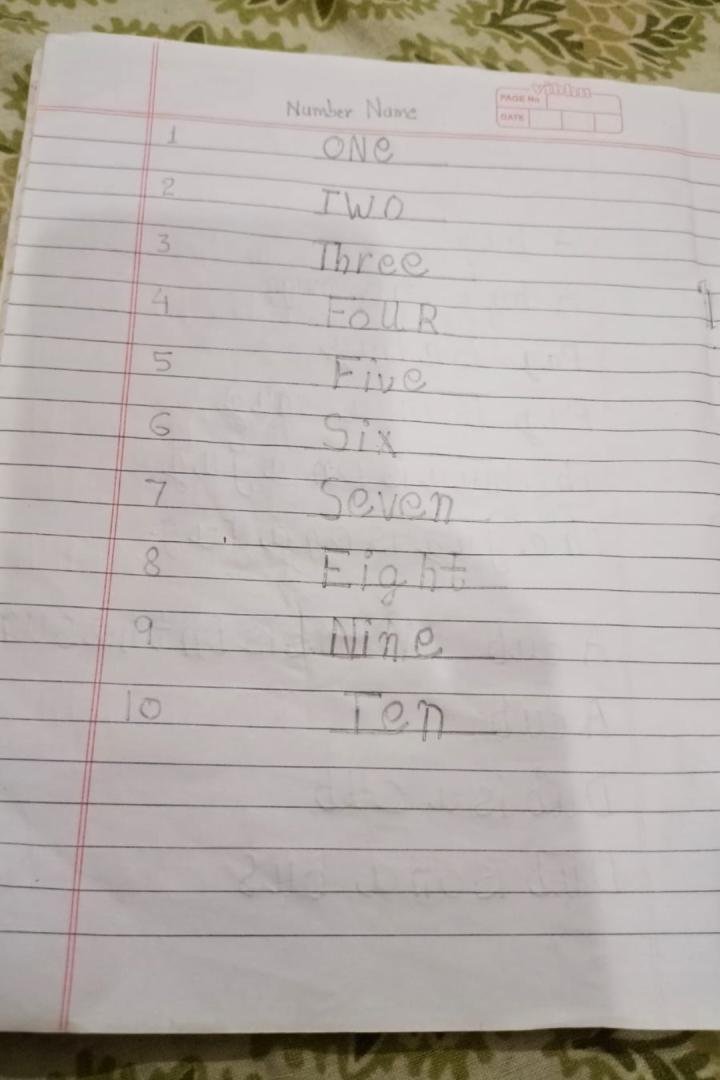 vibhu
PAGE No
DATE
Number Name
1 ONe
2 TWO
3 Three
4 FoUR
5 Five
6 Six
7 Seven
8 Eight
9 Nine
10 Ten